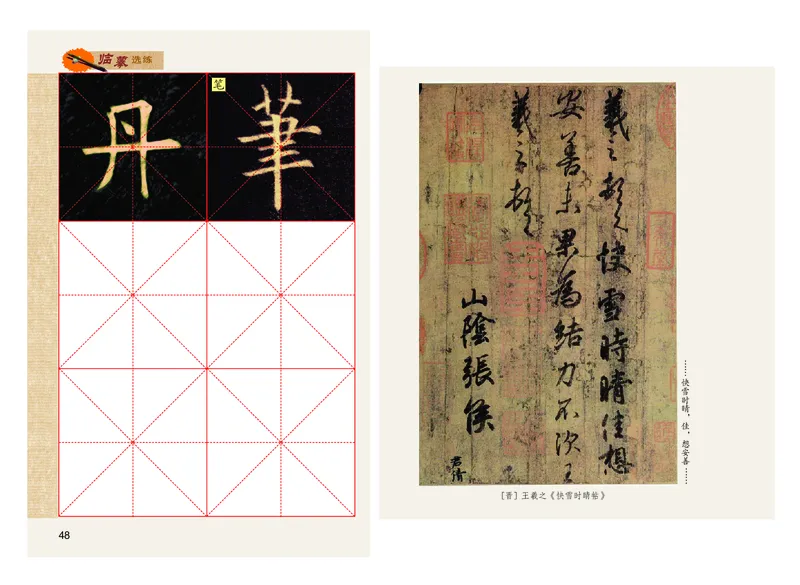 临摹选练
丹
筆
笔
48
羲之頓首快雪時晴佳想
安善未果為結力不次王
羲之頓首
山陰張侯
君倩
……快雪时晴，佳，想安善……
［晋］王羲之《快雪时晴帖》